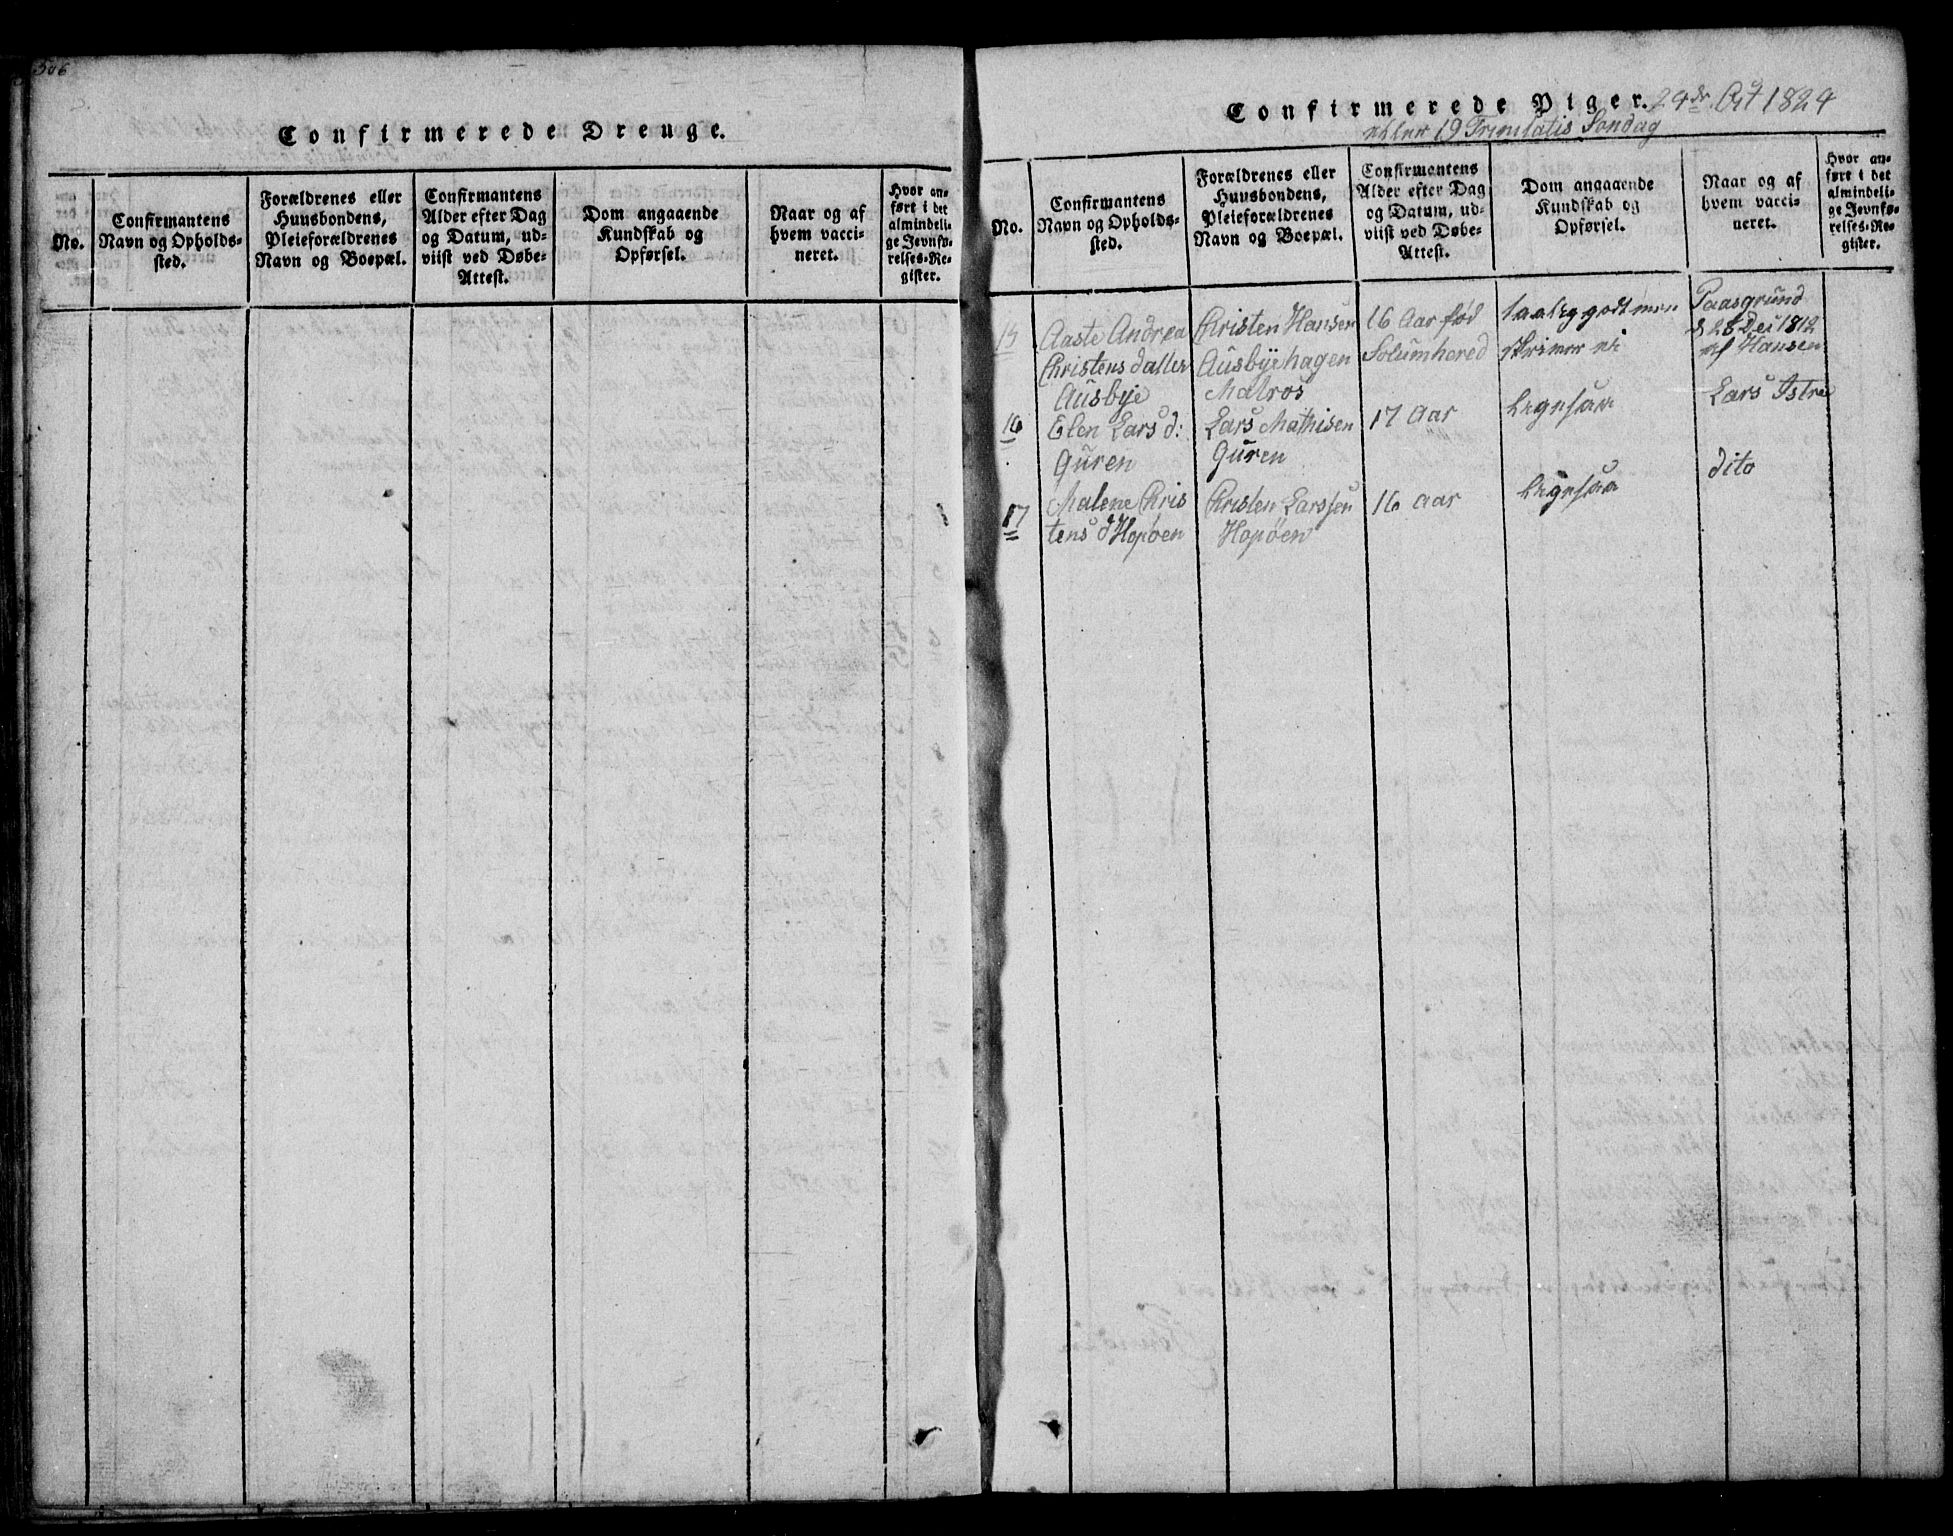 306
Confirmerede Drenge.
No.
Confirmantens
Navn og Opholds-
sted.
Forældrenes eller
Huusbondens,
Pleieforældrenes
Navn og Boepæl.
Confirmantens
Alder efter Dag
og Datum, ud-
viist ved Døbe-
Attest.
Dom angaaende
Kundskab og
Opførsel.
Naar og af
hvem vacci-
neret.
Hvor an-
ført i det
almindeli-
ge Jevnfø-
relses-Re-
gister.
Confirmerede Piger. 24de Oct 1824
19 Trinitatis Søndag
No.
Confirmantens
Navn og Opholds-
sted.
Forældrenes eller
Huusbondens,
Pleieforældrenes
Navn og Boepæl.
Confirmantens
Alder efter Dag
og Datum, ud-
viist ved Døbe-
Attest.
Dom angaaende
Kundskab og
Opførsel.
Naar og af
hvem vacci-
neret.
Hvor an-
ført i det
almindeli-
ge Jevnfø-
relses-Re-
gister.
15
Aaste Andrea
Christens datter
Ausbye
Christen Hansen
Ausbyehagen
Matros
16 Aar fød
Solumhered
godt men
Paasgrund
d 28 Dec 1812
af Hansen
16
Elen Lars d:
Guren
Lars Mathisen
Guren
17 Aar
ligesaa
Lars Istre
17
Malene Chris
tens d Hopøen
Christen Larssen
Hopøen
16 Aar
ligesaa
dito